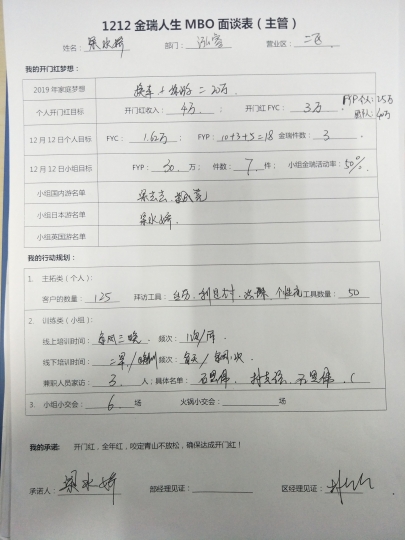 1212金瑞人生MBO面谈表（主管）
姓名：梁水娇 部门：泓睿 营业区：二区
我的开门红梦想：
2019年家庭梦想 换车+旅游=20万
个人开门红目标 开门红收入：4万 开门红FYC：3万 FYP个人：25万
12月12日个人目标 FYC：1.6万； FYP：10+3+5=18 金瑞件数：3
12月12日小组目标 FYP：30万； 件数：7件； 小组金瑞活动率：50%
小组国内游名单
小组日本游名单 梁水娇
小组英国游名单
我的行动规划：
1. 主拓类（个人）：
客户的数量：125 拜访工具：台历、 工具数量：50
2. 训练类（小组）：
线上培训时间：每周三晚 频次：1次/周
线下培训时间：二早/ 频次：每天/
兼职人员家访：3人，具体名单：
3. 小组小交会：6场 火锅小交会：场
我的承诺： 开门红，全年红，咬定青山不放松，确保达成开门红！
承诺人：梁水娇 部经理见证： 区经理见证：